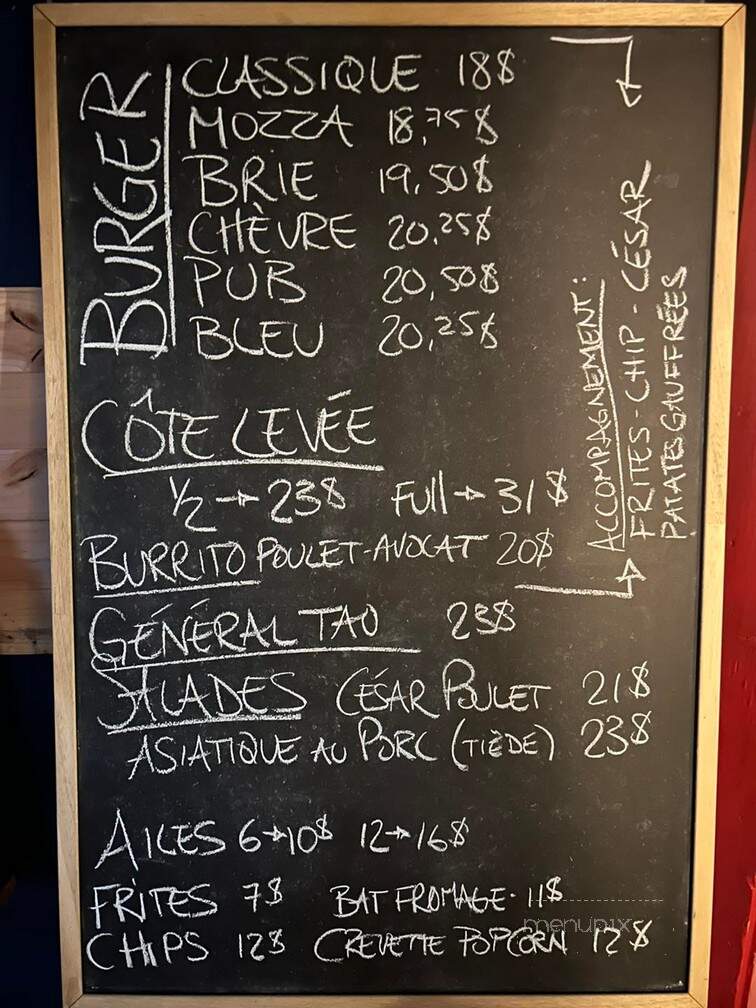 BURGER
CLASSIQUE 18$
MOZZA 18,75$
BRIE 19,50$
CHÈVRE 20,25$
PUB 20,50$
BLEU 20,25$
ACCOMPAGNEMENT:
FRITES - CHIP - CÉSAR
PATATES GAUFFRÉES
CÔTE LEVÉE
1/2 → 23$ FULL → 31$
BURRITO POULET-AVOCAT 20$
GÉNÉRAL TAO 23$
SALADES CÉSAR POULET 21$
ASIATIQUE AU PORC (TIÈDE) 23$
AILES 6→10$ 12→16$
FRITES 7$ BAT FROMAGE - 11$
CHIPS 12$ CREVETTE POPCORN 12$
menupix